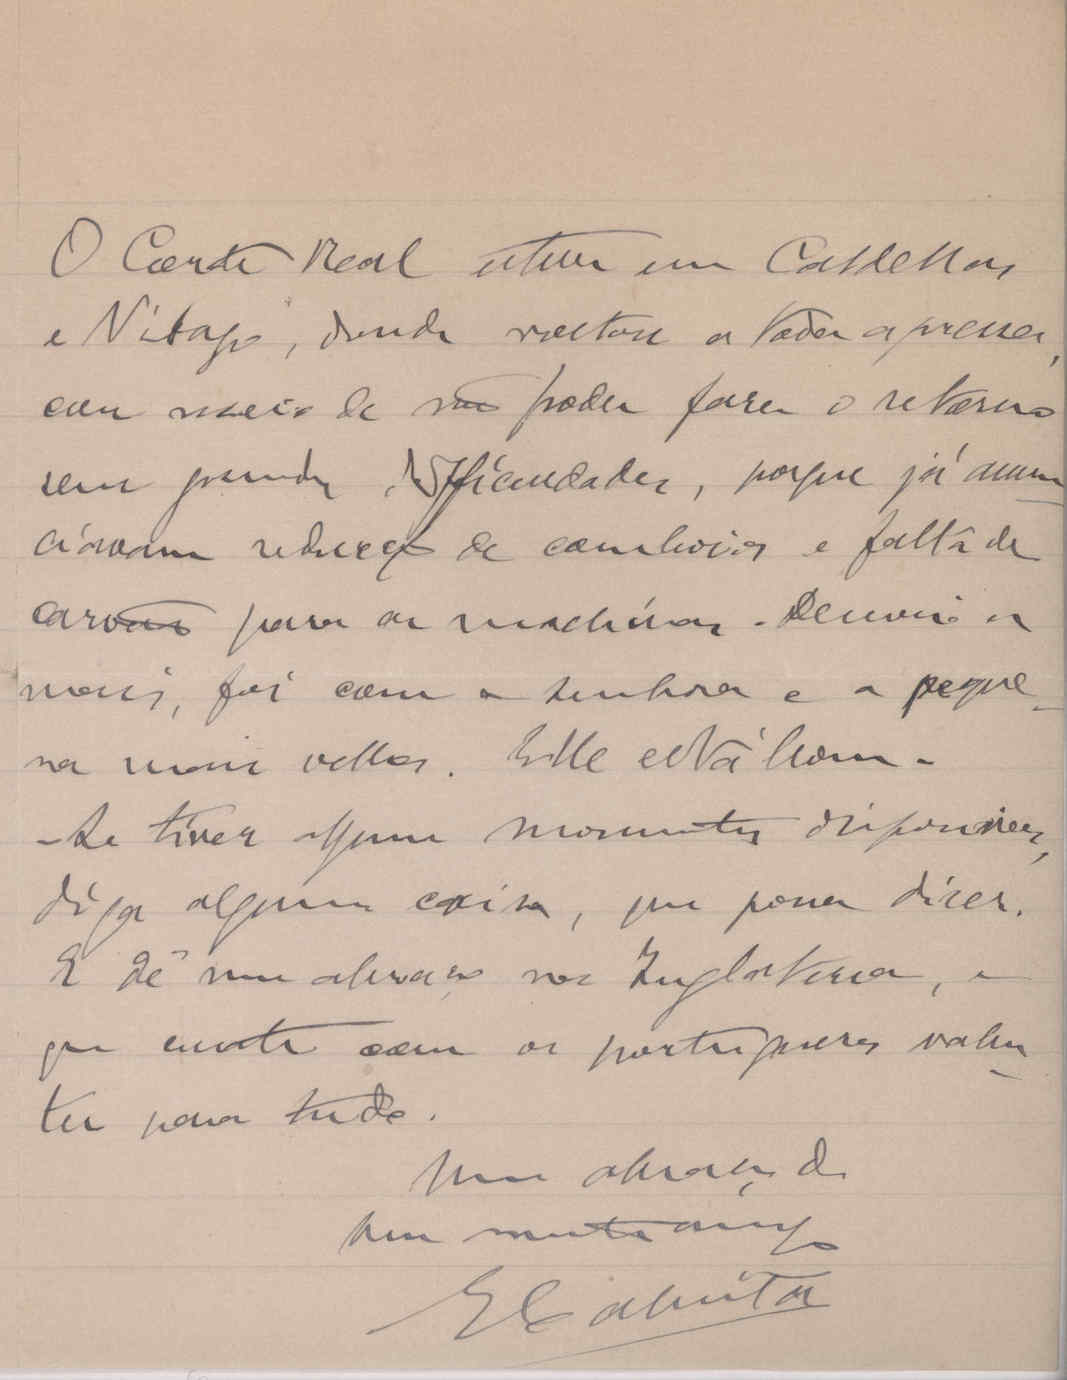 O Corte Real esteve em Caldellas
e Vidago, donde voltou a toda a pressa,
com receio de não poder fazer o retorno
sem grandes difficuldades, porque já anun
ciavam redução de comboios e falta de
carvão para as machinas. Demais a
mais, foi com a senhora e a peque_
na mais velha. Elle está bom.
-Se tiver alguns momentos disponiveis,
diga alguma coisa, que possa dizer.
E dê um abraço na Inglaterra, e
que conte com os portugueses valen_
tes para tudo.
Um abraço do
seu muito amigo